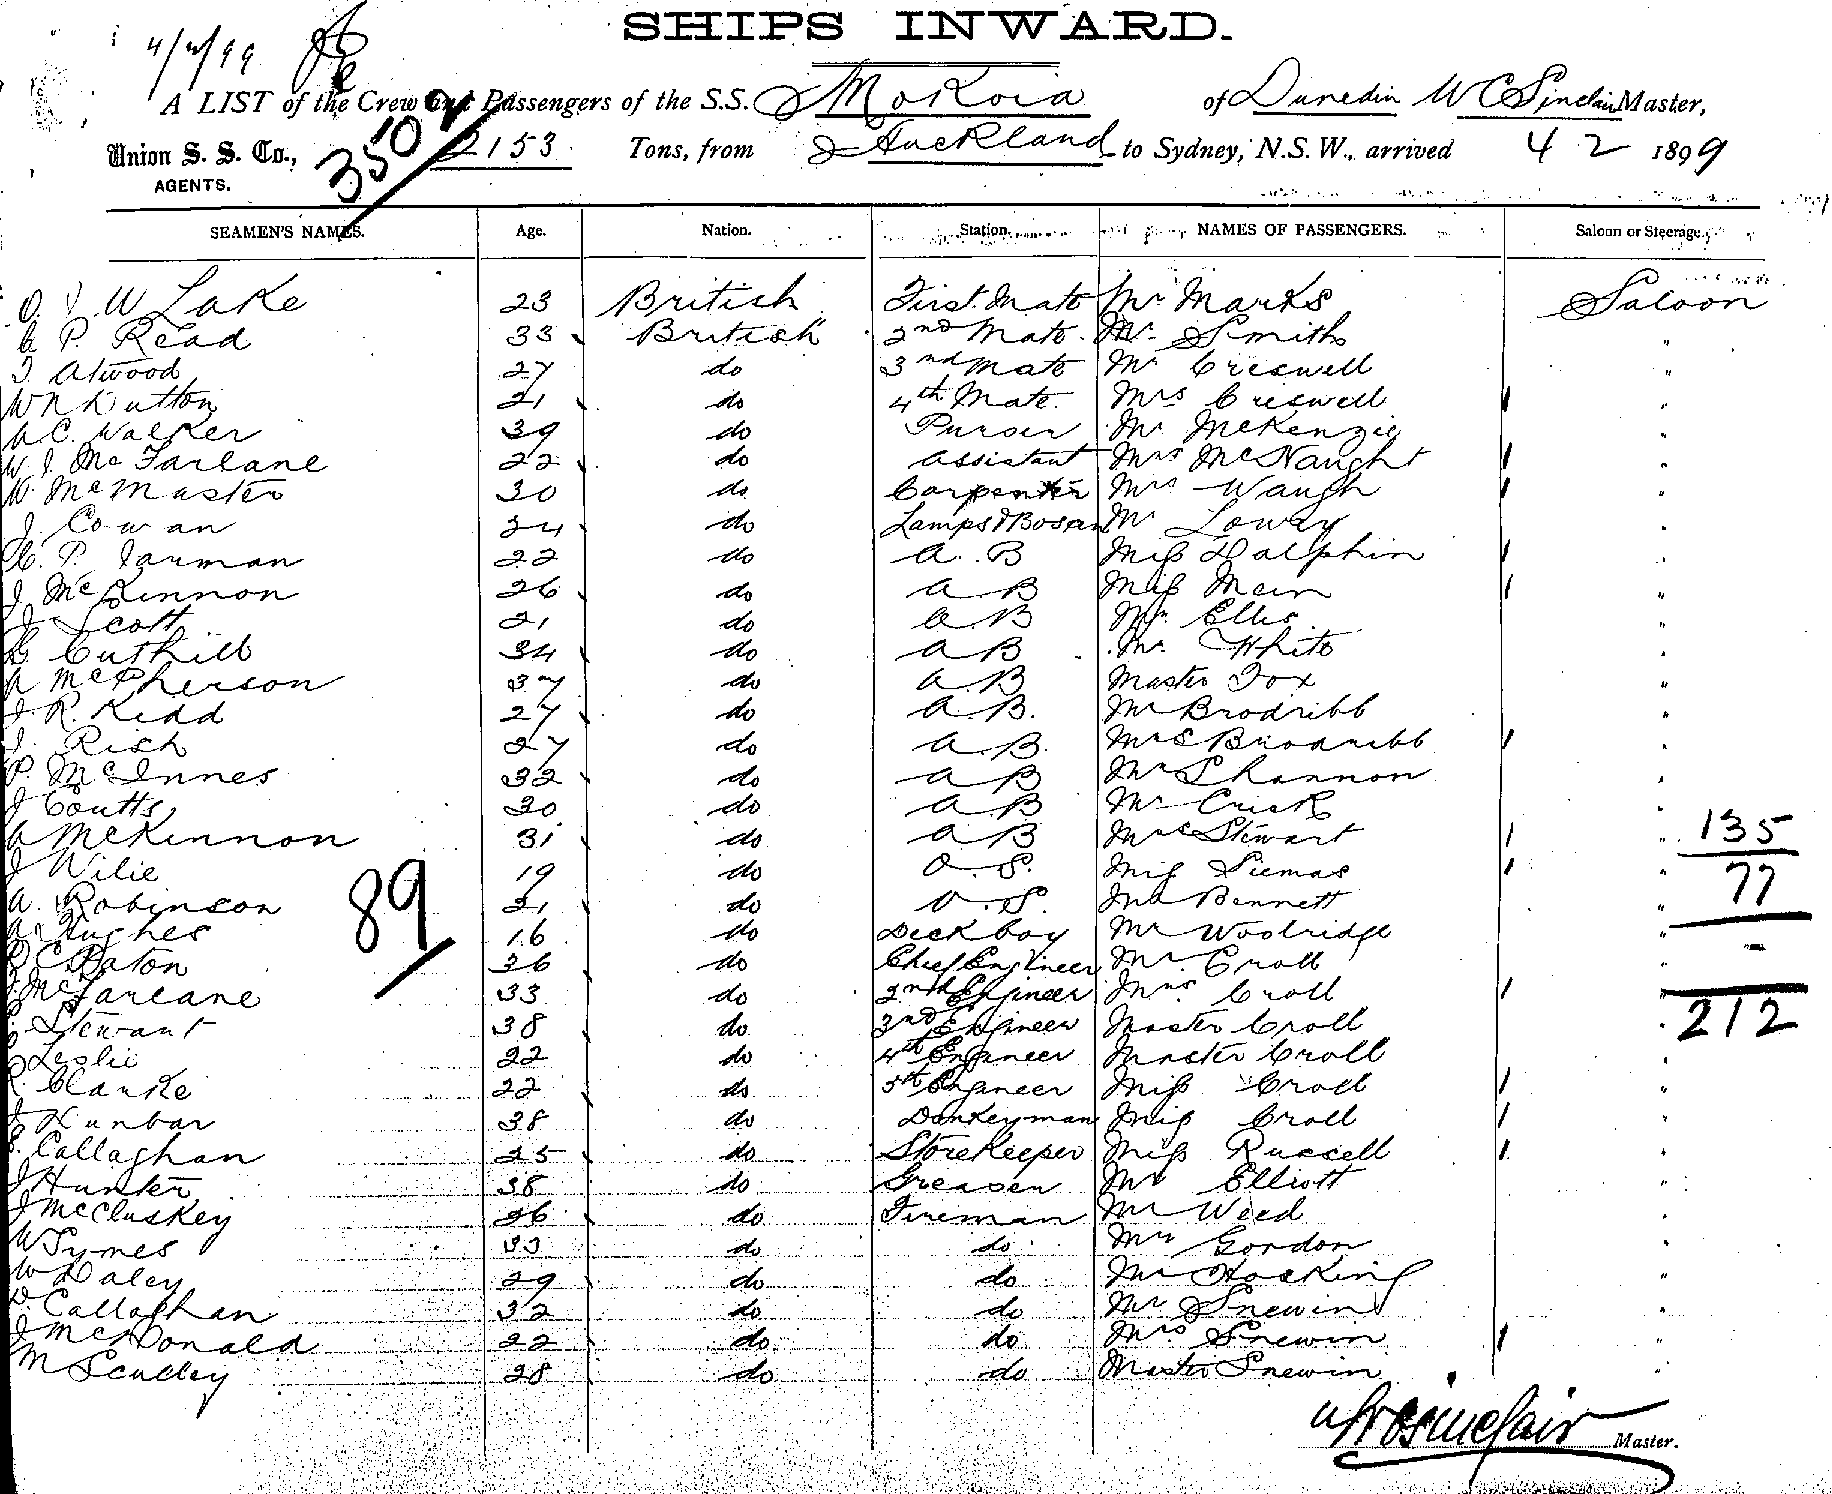 SHIPS INWARD.
4/2/99
A LIST of the Crew and Passengers of the S.S. Mokoia of Dunedin W C Sinclair Master,
Union S. S. Co., 3502 2153 Tons, from Auckland to Sydney, N.S.W., arrived 4 2 1899
AGENTS.
SEAMEN'S NAMES. Age. Nation. Station. NAMES OF PASSENGERS. Saloon or Steerage.
W Lake 23 British First Mate Mr Marks Saloon
P. Read 33 British 2nd Mate. Mr. Smith "
Atwood 27 do 3nd Mate Mr Creswell "
Dutton 21 do 4th Mate. Mrs Creswell "
A C. Walker 39 do Purser Mr McKenzie "
W J. McFarlane 22 do Assistant Mrs McNaught "
McMaster 30 do Carpenter Mrs Waugh "
J. Cowan 34 do Lamps & Bosan Mr Lowry "
P. Jarman 22 do A. B Miss Dalphin "
J McKinnon 26 do A B Miss Mein "
J Scott 21 do A B Mr Ellis "
Cuthill 34 do A B Mr. White "
A McPherson 37 do A. B Master Fox "
J. R. Kidd 27 do A. B. Mr Brodribb "
J. Rich 27 do A. B. Mrs Brodribb "
P. McInnes 32 do A B Mr Shannon "
J Coutts 30 do A B Mr Crick "
A McKinnon 31 do A B Mrs Stewart " 135
J Wilie 19 do O. S. Miss Siemas 77
A. Robinson 21 do O. S. Bennett "
89
A Hughes 16 do Deck boy Mr Woolridge " -
Paton 36 do Chief Engineer Mr. Croll "
McFarlane 33 do 2nd Engineer Mrs Croll
Stewart 38 do 3nd Engineer Master Croll 212
Leslie 22 do 4th Engineer Master Croll
Clarke 22 do 5th Engineer Miss Croll "
Dunbar 38 do Donkeyman Miss Croll "
Callaghan 25 do Storekeeper Miss Russell "
J Hunter 38 do Greaser Mr Elliott "
J McCluskey 26 do Fireman Mr Weed "
W Symes 33 do do Mr Gordon "
W Daley 29 do do Mr Hosking "
Callaghan 32 do do Mr Snewin "
J McDonald 22 do do Mrs Snewin "
M Sculley 28 do do Master Snewin "
W C Sinclair Master.